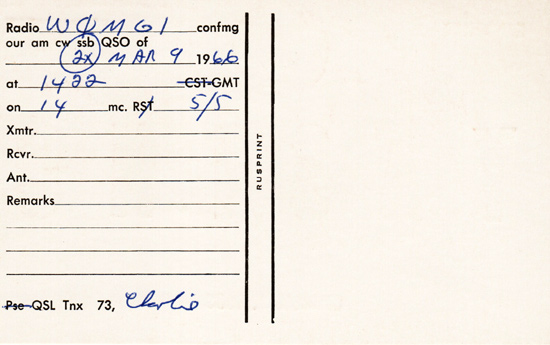 Radio WØMGI confmg
our am cw ssb QSO of
2x MAR 9 1966
at 1422 CST-GMT
on 14 mc. RST 5/5
Xmtr.
Rcvr.
Ant.
Remarks
Pse QSL Tnx 73, Charlie
RUSPRINT